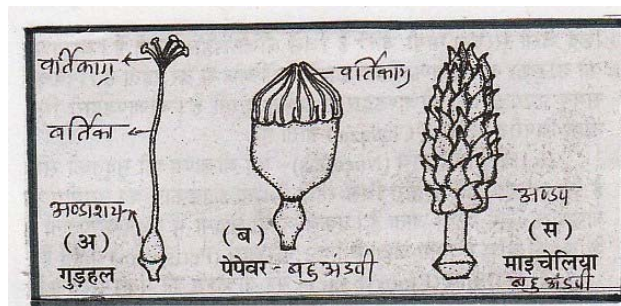 वर्तिकाग्र
वर्तिका
अण्डाशय
(अ)
गुड़हल
वर्तिकाग्र
(ब)
पेपेवर - बहु अंडपी
अण्डप
(स)
माइचेलिया
बहु अंडपी